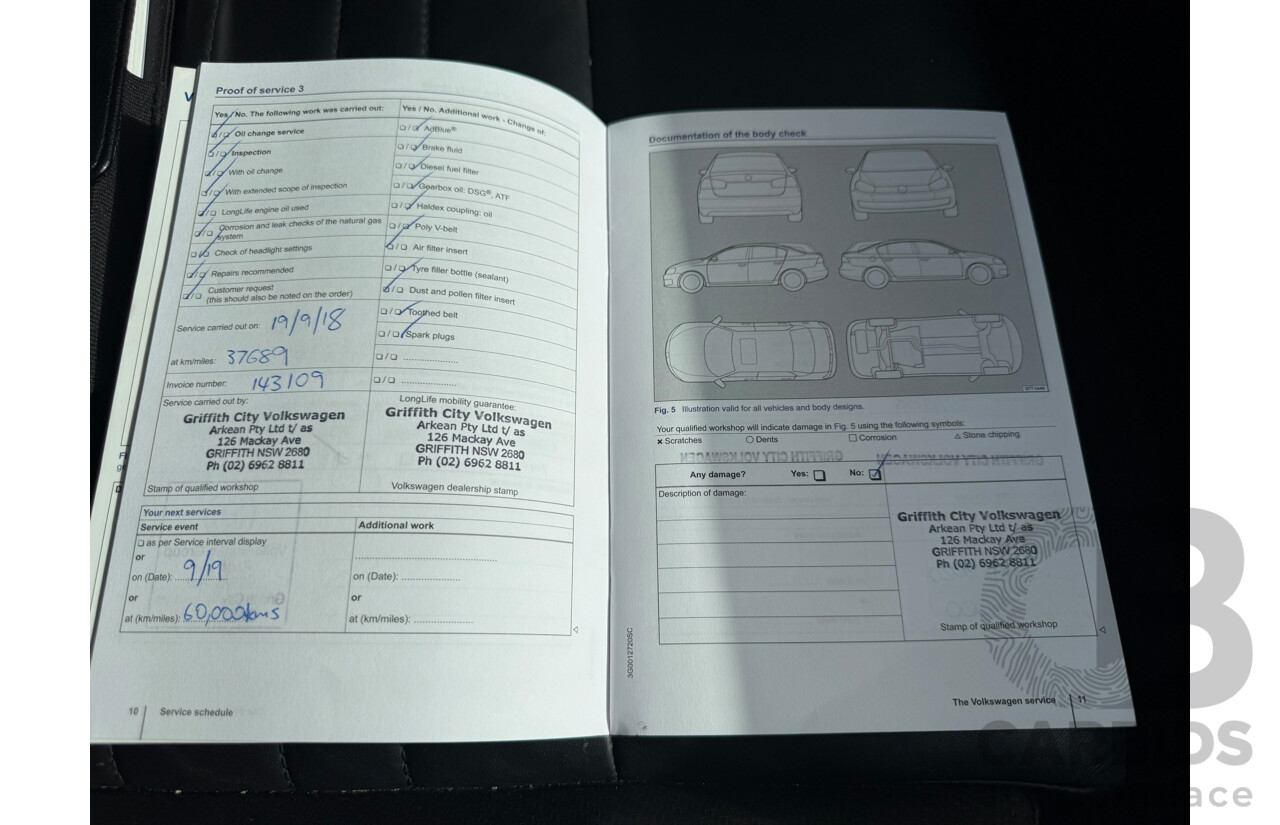 Proof of service 3
Yes/No. The following work was carried out:
☑/☐ Oil change service
☑/☐ Inspection
☑/☐ With oil change
☑/☐ With extended scope of inspection
☑/☐ LongLife engine oil used
☐/☐ Corrosion and leak checks of the natural gas
system
☐/☐ Check of headlight settings
☐/☐ Repairs recommended
☐/☐ Customer request
(this should also be noted on the order)
Service carried out on: 19/9/18
at km/miles: 37689
Invoice number: 143109
Service carried out by:
Griffith City Volkswagen
Arkean Pty Ltd t/ as
126 Mackay Ave
GRIFFITH NSW 2680
Ph (02) 6962 8811
Stamp of qualified workshop
Yes / No. Additional work - Change of:
☐/☑ AdBlue®
☐/☑ Brake fluid
☐/☑ Diesel fuel filter
☐/☑ Gearbox oil: DSG®, ATF
☐/☑ Haldex coupling: oil
☐/☑ Poly V-belt
☑/☐ Air filter insert
☐/☑ Tyre filler bottle (sealant)
☑/☐ Dust and pollen filter insert
☐/☑ Toothed belt
☐/☑ Spark plugs
☐/☐ ....................
☐/☐ ....................
LongLife mobility guarantee:
Griffith City Volkswagen
Arkean Pty Ltd t/ as
126 Mackay Ave
GRIFFITH NSW 2680
Ph (02) 6962 8811
Volkswagen dealership stamp
Your next services
Service event
☐ as per Service interval display
or
on (Date): 9/19
or
at (km/miles): 60,000kms
Additional work
on (Date): ....................
or
at (km/miles): ....................
10 Service schedule
Documentation of the body check
Fig. 5 Illustration valid for all vehicles and body designs.
Your qualified workshop will indicate damage in Fig. 5 using the following symbols:
× Scratches ○ Dents □ Corrosion △ Stone chipping
Any damage? Yes: ☐ No: ☑
Description of damage:
Griffith City Volkswagen
Arkean Pty Ltd t/ as
126 Mackay Ave
GRIFFITH NSW 2680
Ph (02) 6962 8811
Stamp of qualified workshop
3G0012720SC
The Volkswagen service 11